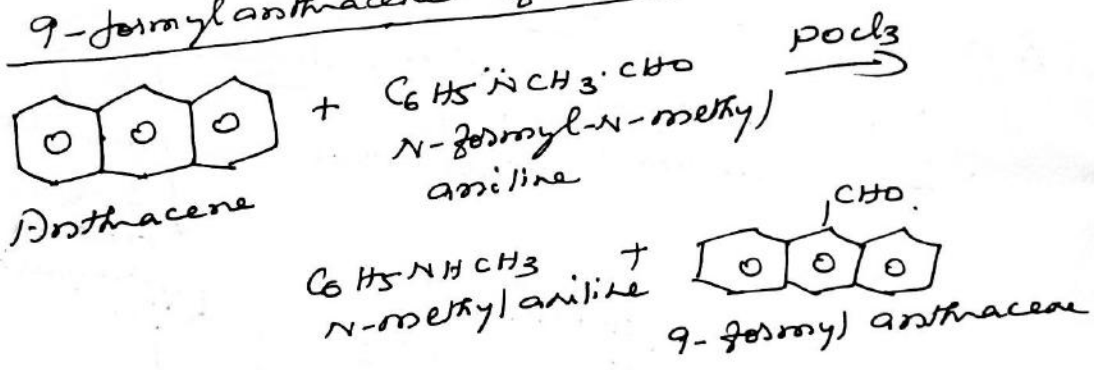 9-formylanthracene
+ C6H5N̈CH3.CHO POCl3
N-formyl-N-methyl
aniline
Anthracene
CHO.
C6H5NHCH3 +
N-methyl aniline
9-formyl anthracene